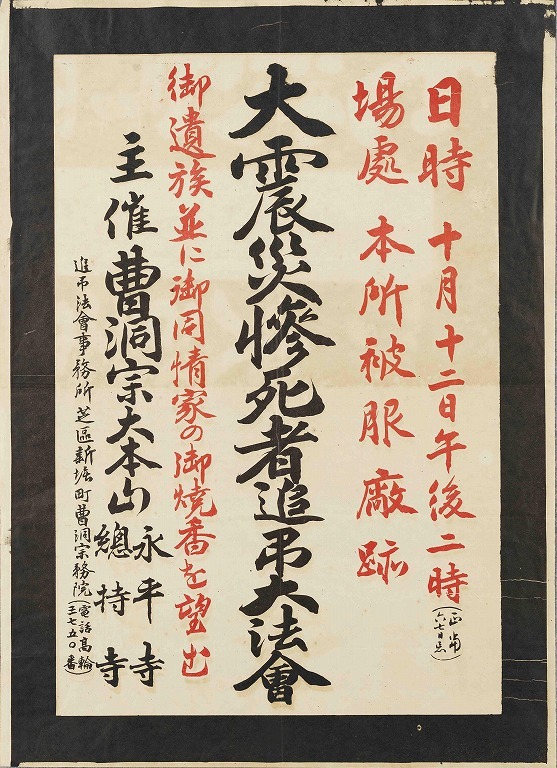 日時 十月十二日午後二時(正當六七日忌)
場處 本所被服廠跡
大震災慘死者追弔大法會
御遺族並に御同情家の御焼香を望む
主催曹洞宗大本山永平寺
總持寺
追弔法會事務所芝區新堀町曹洞宗務院(電話高輪三七五〇番)